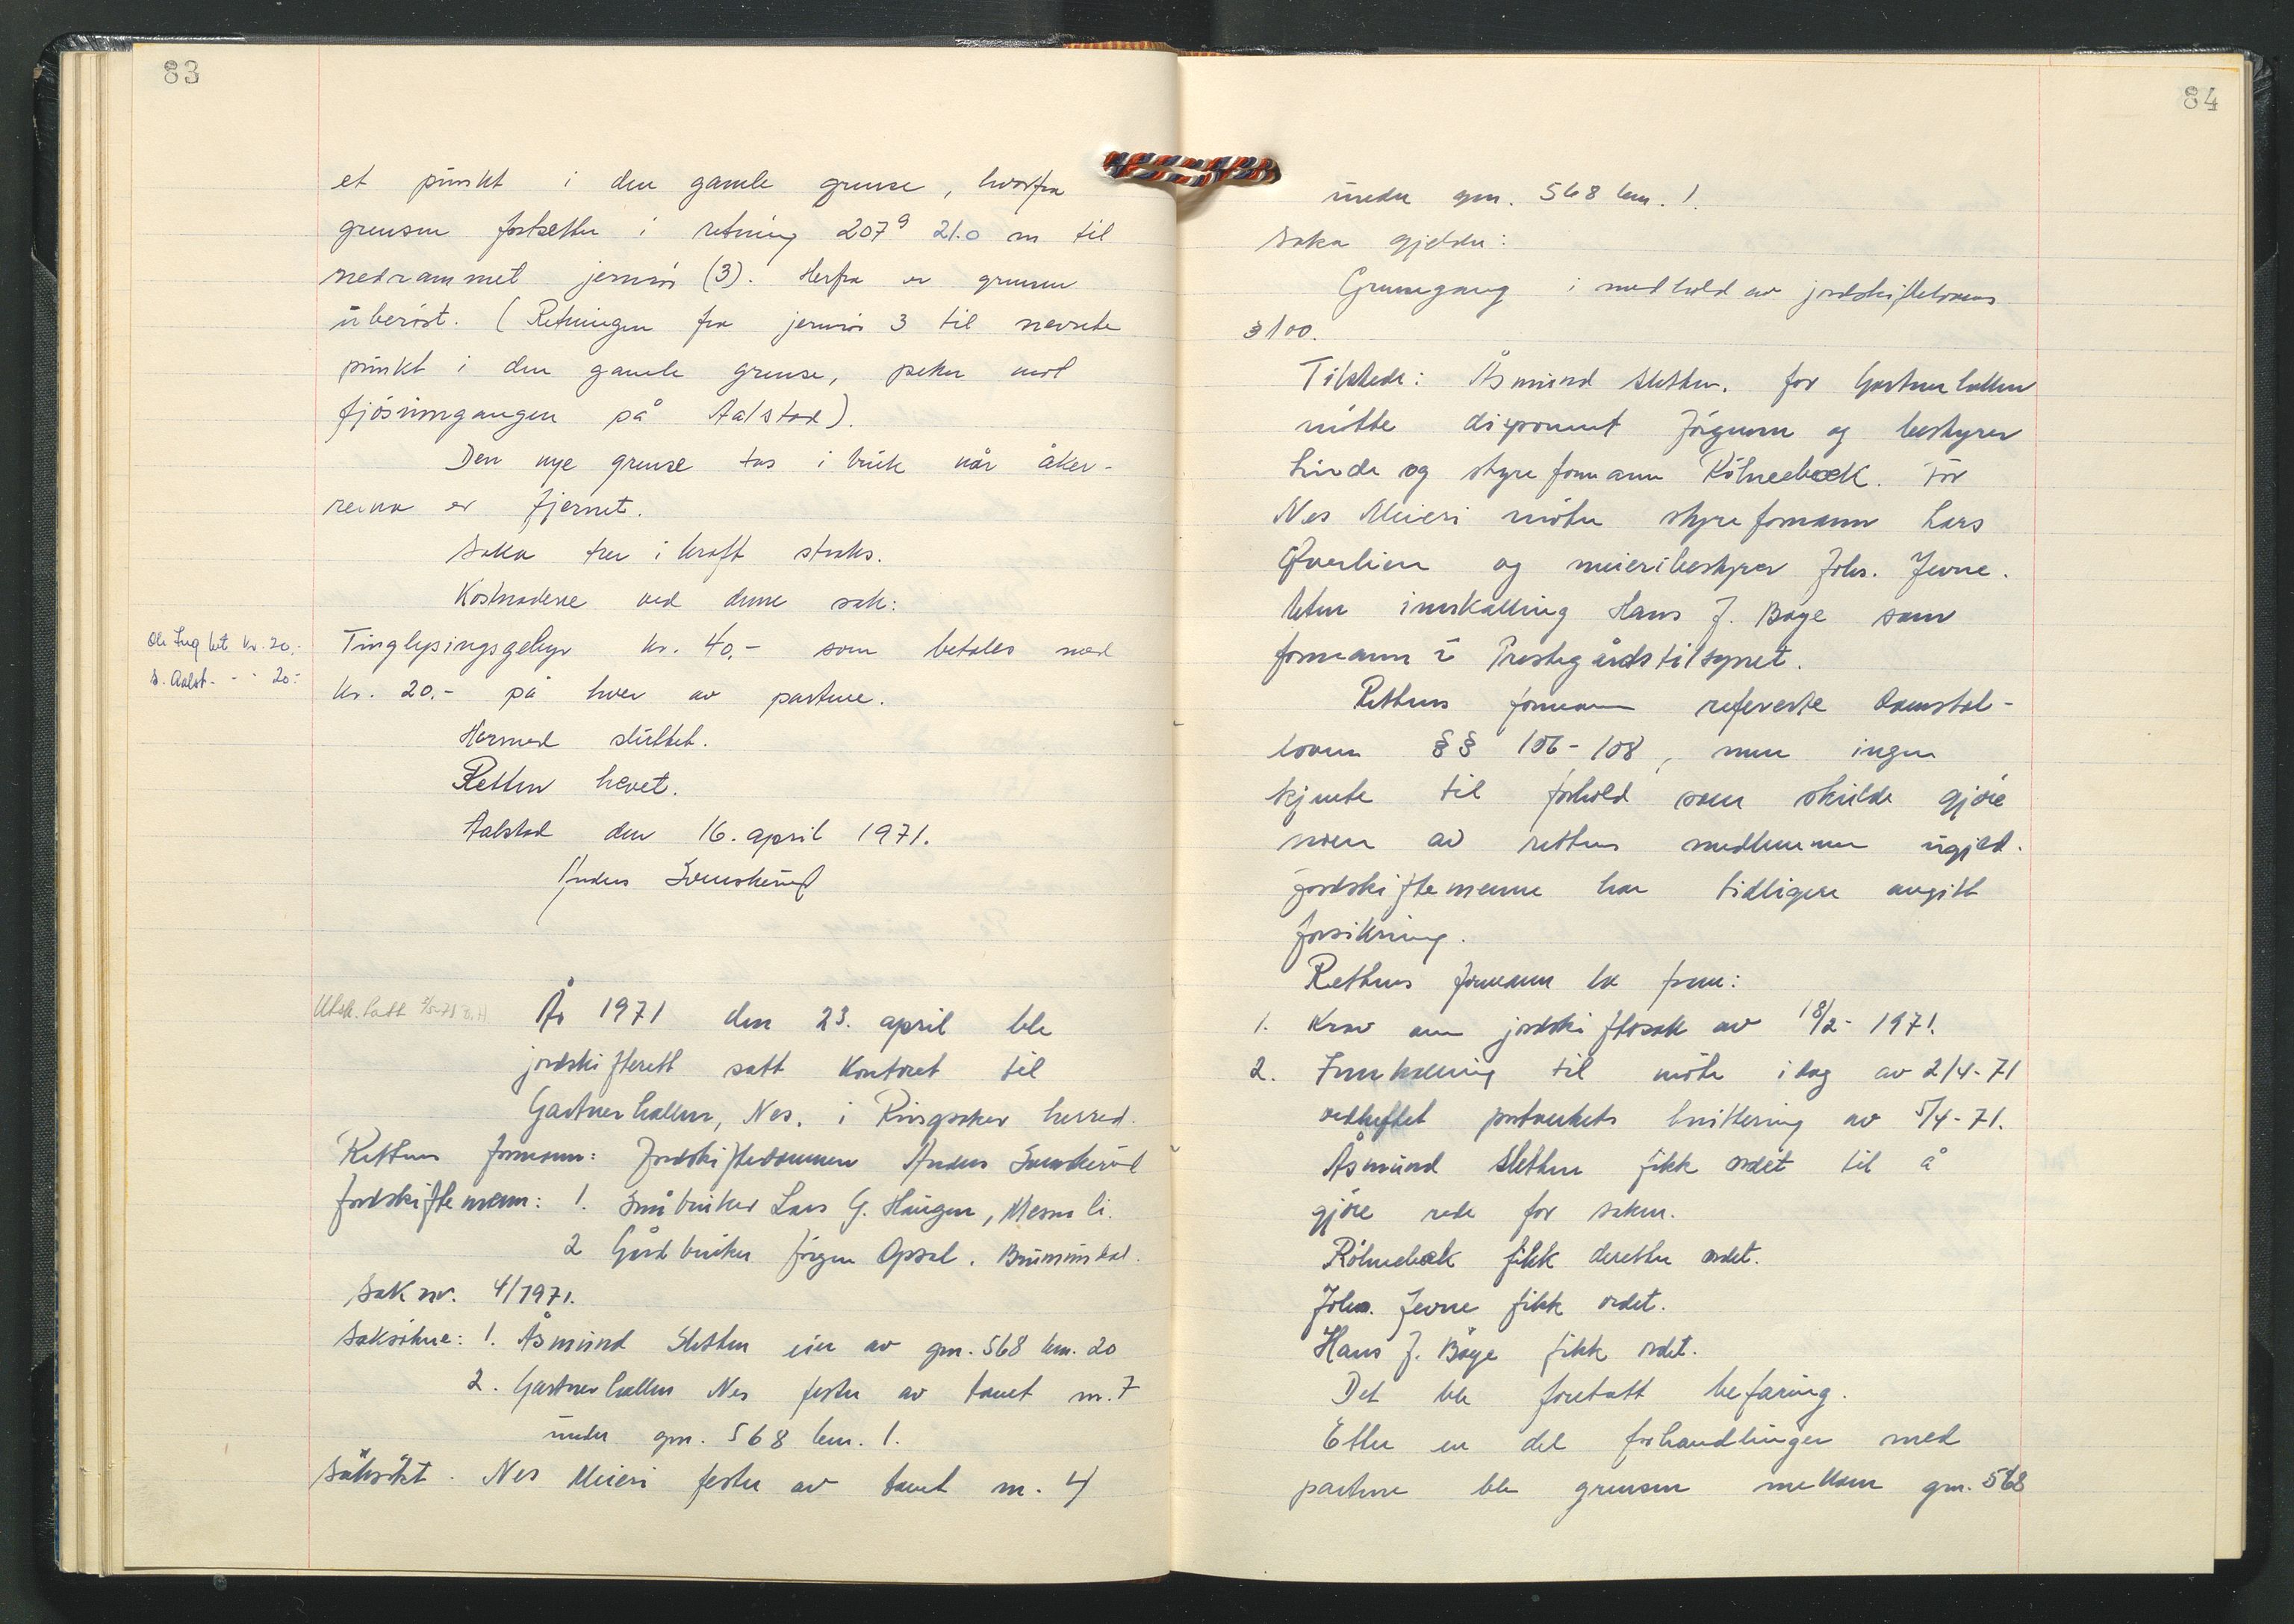 83
et punkt i den gamle grense, hvorfra
grensen fortsetter i retning 207g 21.0 m til
nedrammet jernrör (3). Herfra er grensen
uberöst. (Retningen fra jernrör 3 til nevnte
punkt i den gamle grense, peker mot
fjösinngangen på Aalstad).
Den nye grense tas i bruk når åker-
reina er fjernet.
Saka trer i kraft straks.
Kostnadene ved denne sak:
Ole Lug bet kr. 20.-
S. Aalst. - - 20.-
Tinglysingsgebyr kr. 40,- som betales med
kr. 20.- på hver av partene.
Hermed sluttet.
Retten hevet.
Aalstad den 16. april 1971.
Anders Svenskerud
Utsk. Satt
År 1971 den 23. april ble
jordskifterett satt Kontoret til
Gartnerhallen, Nes. i Ringsaker herred.
Rettens formann: Jordskiftedommer Anders Svenskerud
Jordskiftemenn: 1. Småbruker Lars G. Haugen, Mesnali.
2 Gårdbruker Jörgen Opsal. Brumunddal.
Sak nr. 4/1971.
Saksökere: 1. Åsmund Sletten eier av gnr. 568 bnr. 20
2. Gartnerhallen Nes fester av tomt nr. 7
under gnr. 568 bnr. 1.
Saksökt. Nes Meieri fester av tomt nr. 4
84
under gnr. 568 bnr. 1.
Saka gjelder:
Grensegang i medhold av jordskiftelovens
§ 100.
Tilstede: Åsmund Sletten. for Gartnerhallen
mötte disponent Jörgensen og bestyrer
Linde og styreformann Kölnebæk. For
Nes Meieri möter styreformann Lars
Överlien og meieribestyrer Johs. Jevne.
Uten innkalling Hans J. Böye som
formann i Prestegårdstilsynet.
Rettens formann refererte Domstol-
loven §§ 106-108, men ingen
kjente til forhold som skulde gjöre
noen av rettens medlemmer ugild.
Jordskiftemenne har tidligere avgitt
forsikring.
Rettens formann la frem:
1. Krav om jordskiftesak av 18/2- 1971.
2. Innkalling til möte idag av 2/4-71
vedheftet postverkets kvittering av 5/4-71.
Åsmund Sletten fikk ordet til å
gjöre rede for saken.
Kölnebæk fikk deretter ordet.
Johs. Jevne fikk ordet.
Hans J. Böye fikk ordet.
Det ble foretatt befaring.
Etter en del forhandlinger med
partene ble grensen mellom gnr. 568